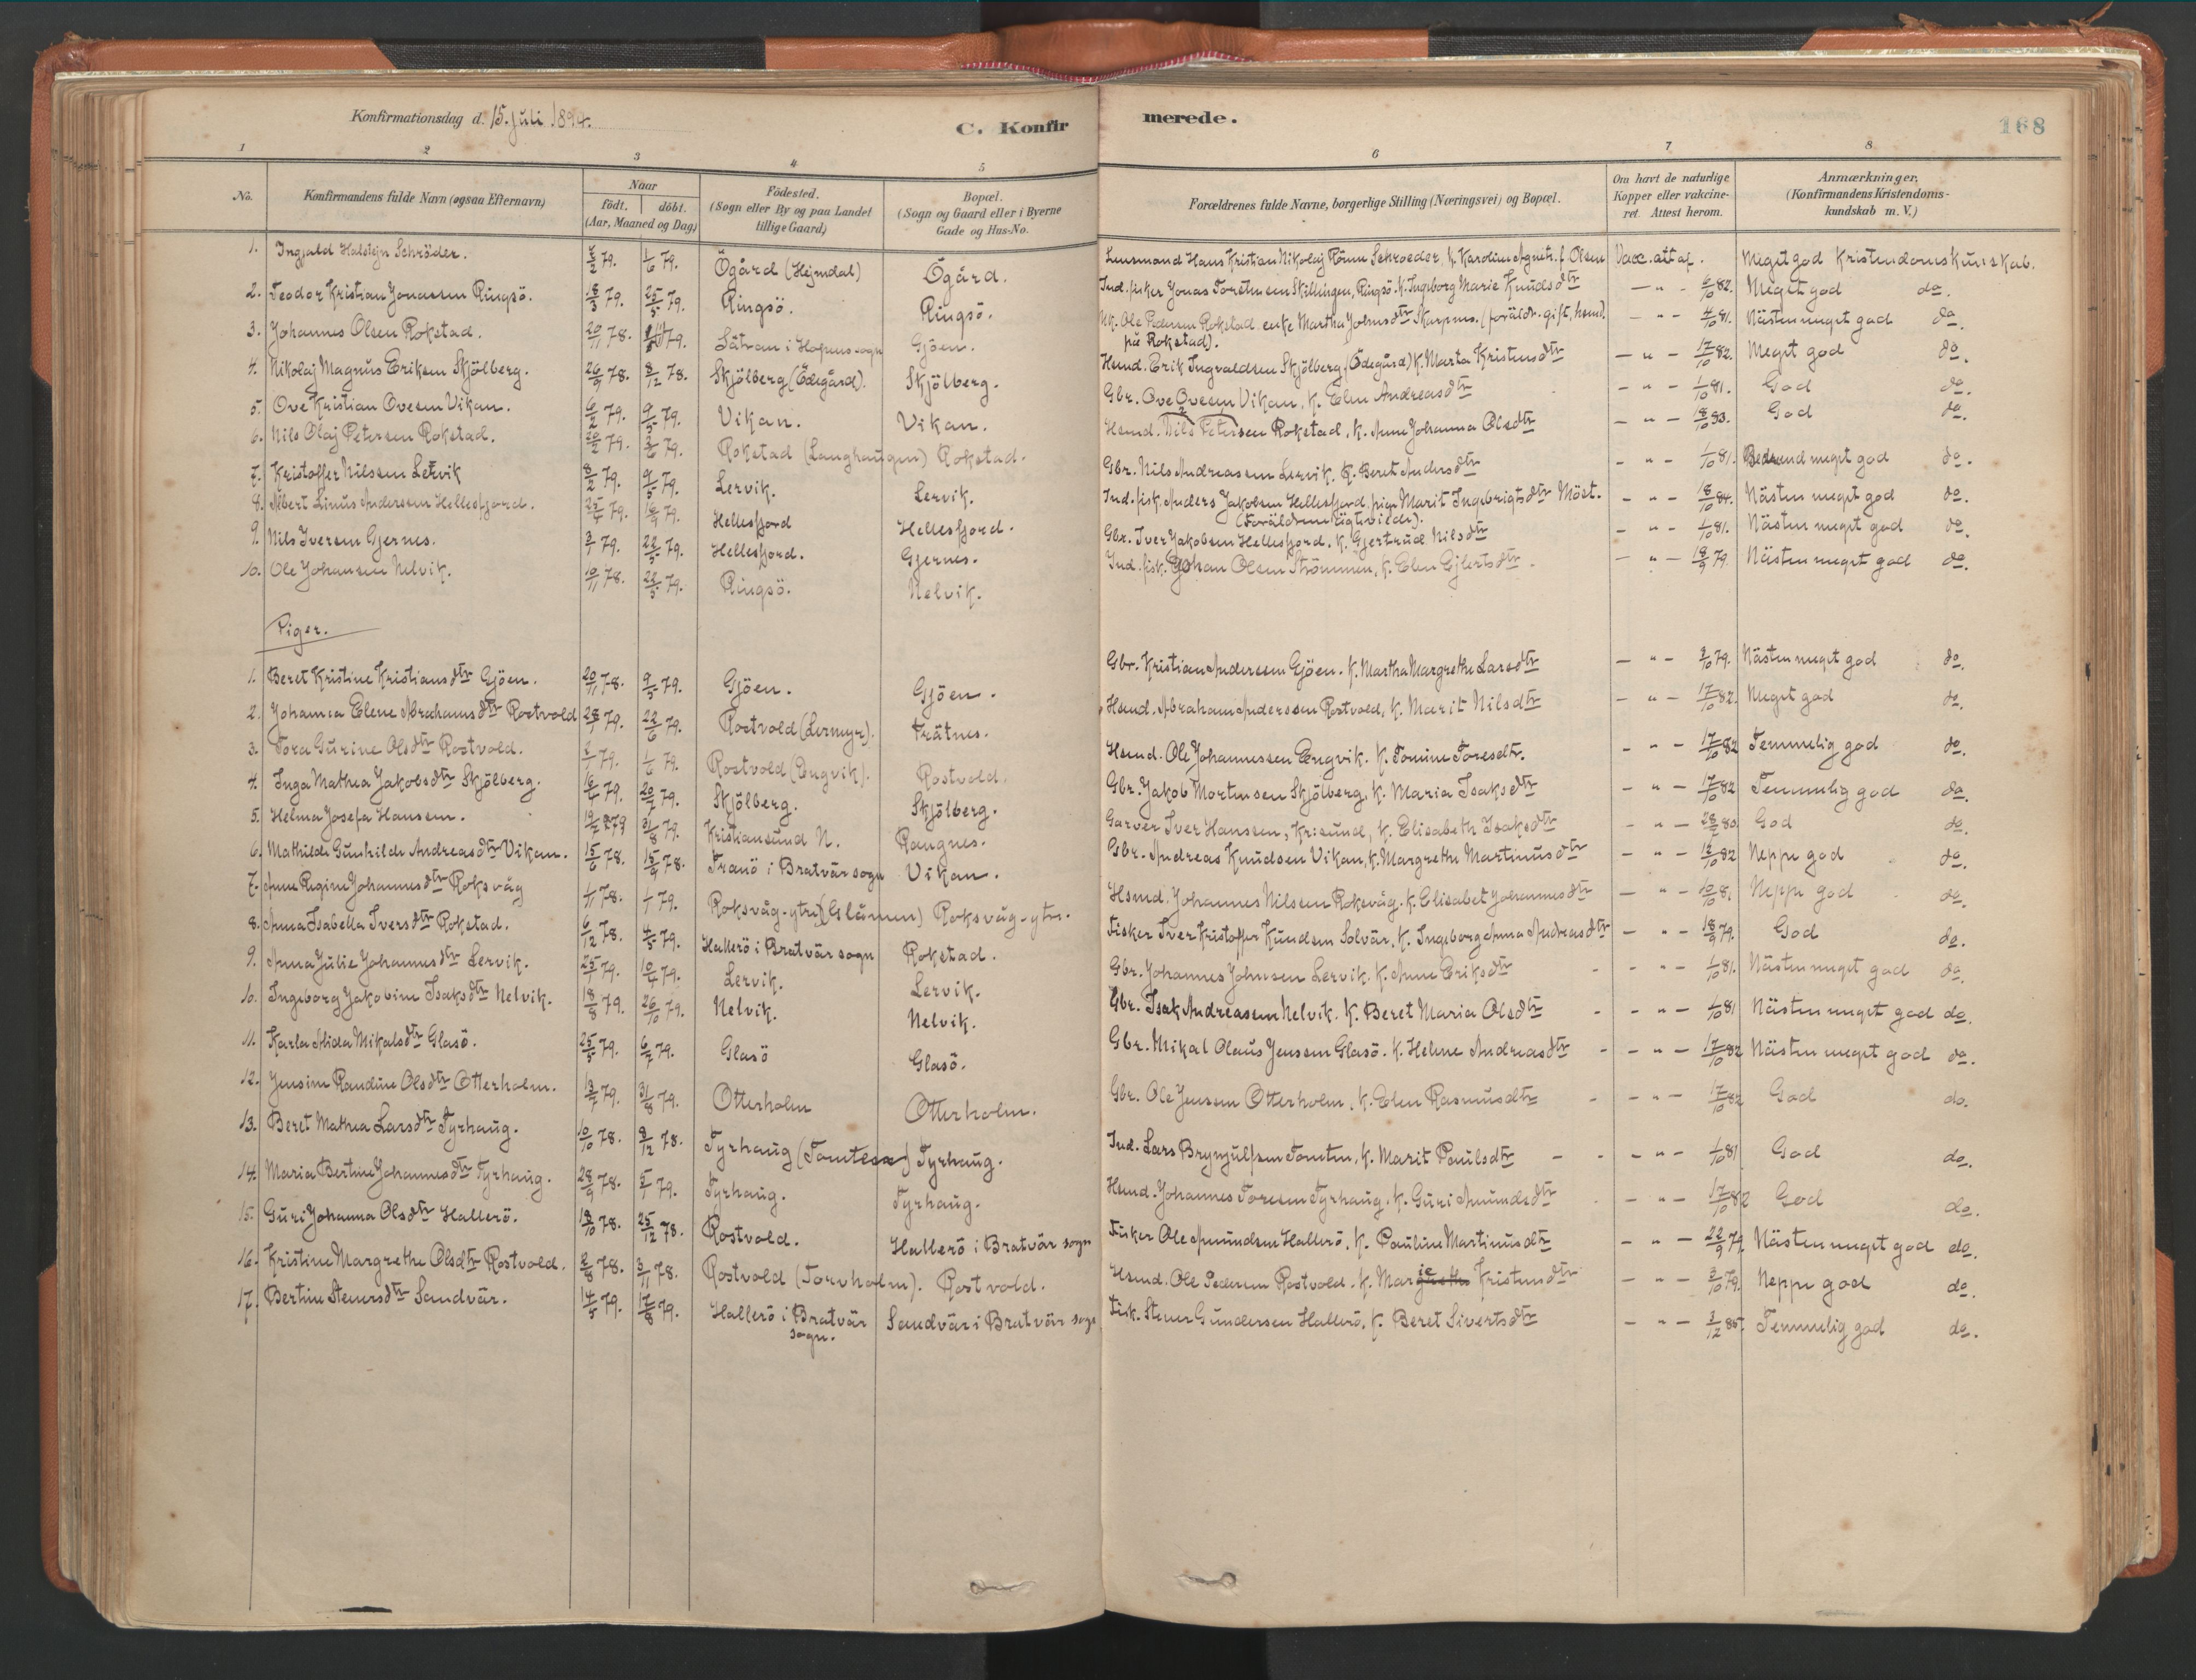 Konfirmationsdag d. 15. Juli 1894.
C. Konfirmerede.
168
1 2 3 4 5 6 7 8
No.
Konfirmandens fulde Navn (ogsaa Efternavn)
Naar
födt. döbt.
(Aar, Maaned og Dag)
Födested.
(Sogn eller By og paa Landet
tillige Gaard)
Bopæl.
(Sogn og Gaard eller i Byerne
Gade og Hus-No.
Forældrenes fulde Navne, borgerlige Stilling (Næringsvei) og Bopæl.
Om havt de naturlige
Kopper eller vakcine-
ret. Attest herom.
Anmærkninger,
(Konfirmandens Kristendoms-
kundskab m. V.)
1. Ingjald Halstejn Schröder. 79. 1/6 79. Ögård (Hejmdal) Ögård. Lensmand Hans Kristian Nikolaj Schroeder, K. Karoline Agnete f. Olsen Vacc. att af. Meget god Kristendomskunskab.
2. Teodor Kristian Jonassen Ringsö. 18/3 79. 25/5 79. Ringsö. Ringsö. Ind. fisker Jonas Skillingen, Ringsö. K. Ingeborg Marie Knudsdtr — " - 6/10 82. Meget god do.
3. Johannes Olsen Rokstad. 20/11 78. 79. Sätran i Hopens sogn Gjöen. Ole Pedersen Rokstad. enke Martha Johnsdtr Skarpnes. (foräldr. gift, hsmd. - " - 4/10 81. Nästen meget god do.
på Rokstad).
4. Nikolaj Magnus Eriksen Skjölberg. 26/9 78. 8/12 78. Skjölberg (Ödegård). Skjölberg. Hsmd. Erik Ingvaldsen Skjölberg (Ödegård) K. Marta Kristensdtr — " - 17/10 82. Meget god do.
5. Ove Kristian Ovesen Vikan. 6/2 79. 9/5 79. Vikan. Vikan. Gbr. Ove Ovesen Vikan, K. Elen Andreasdtr - " - 1/10 81. God do.
6. Nils Olaj Petersen Rokstad. 20/2 79. 2/6 79. Rokstad (Langhaugen) Rokstad. Hsmd. Nils Petersen Rokstad, K. Anne Johanna Olsdtr - " - 18/10 93. God do.
7. Kristoffer Nilssen Lervik 8/2 79. 9/5 79. Lervik. Lervik. Gbr. Nils Andreassen Lervik. K. Beret Andersdtr - " - 1/10 81. Bedre end meget god do.
8. Albert Linus Anderssen Hellesfjord. 25/4 79. 16/9 79. Hellesfjord Hellesfjord. Ind. fisk. Anders Jakobsen Hellesfjord, pige Marit Ingebrigtsdtr Möst. - " - 18/10 84. Nästen meget god do.
(Foräldrene ugteviede).
9. Nils Iversen Gjernes. 3/1 79. 22/5 79. Hellesfjord. Gjernes. Gbr. Iver Jakobsen Hellesfjord. K. Gjertrud Nilsdtr - " - 1/10 81. Nästen meget god do.
10. Ole Johansen Nelvik. 10/11 78. 22/5 79. Ringsö. Nelvik. Ind. fisk. Johan Olsen Strömmen, K. Elen Ejlertsdtr. — " - 18/9 79. Nästen meget god do.
Piger.
1. Beret Kristine Kristiansdtr Gjöen. 20/11 78. 9/5 79. Gjöen. Gjöen. Gbr. Kristian Anderssen Gjöen. K. Martha Margrethe Larsdtr — " - 2/10 79. Nästen meget god do.
2. Johanna Elene Abrahamsdtr Rostvold 28/1 79. 22/6 79. Rostvold (Lermyr). Trätnes. Hsmd. Abraham Anderssen Rostvold, K. Marit Nilsdtr — " - 17/10 82. Meget god do.
3. Tora Gurine Olsdtr Rostvold. 79. 1/6 79. Rostvold (Engvik). Rostvold. Hsmd. Ole Johannessen Engvik. K. Tomine Toresdtr. - " - 17/10 82 Temmelig god do.
4. Inga Mathea Jakobsdtr Skjölberg. 16/4 79. 20/7 79. Skjölberg. Skjölberg. Gbr. Jakob Mortensen Skjölberg, K. Maria Isaksdtr - " - 17/10 82 Temmelig god do.
5. Helma Josefa Hansen. 79 31/8 79. Kristiansund N. Raugnes. Garver Iver Hanssen, Krisund, K. Elisabeth Isaksdtr - " - 80 God do.
6. Mathilde Gunhilde Andreasdtr Vikan. 15/6 78. 15/9 78. Tranö i Bratvär sogn Vikan. Gbr. Andreas Knudsen Vikan, K. Margrethe Martinusdtr - " - 12/10 82 Neppe god do.
7. Anne Regine Johannesdtr Roksvåg 1/11 78. 1/1 79. Roksvåg-ytre (Glåmen) Roksvåg-ytre. Hsmd. Johannes Nilssen Roksvåg. K. Elisabet Johannesdtr — " - 10/10 81. Neppe god do.
8. Anna Isabella Iversdtr Rokstad. 6/12 78. 4/5 79. Hallerö i Bratvär sogn Rokstad. Fisker Iver Kristoffer Knudsen Solvär, K. Ingeborg Anna Andreasdtr — " - 18/9 79. God do.
9. Anna Julie Johannesdtr Lervik. 79. 10/4 79. Lervik. Lervik. Gbr. Johannes Johnsen Lervik. K. Anne Eriksdtr - " - 1/10 81. Nästen meget god do.
10. Ingeborg Jakobine Isaksdtr Nelvik. 18/8 79. 26/10 79. Nelvik. Nelvik. Gbr. Isak Andreassen Nelvik. K. Beret Maria Olsdtr - " - 1/10 81 Nästen meget god do.
11. Karla Alida Mikalsdtr Glasö. 25/5 79. 6/7 79. Glasö Glasö. Gbr. Mikal Olaus Jenssen Glasö. K. Helene Andreasdtr - " - 17/10 82 Nästen meget god do.
12. Jensine Randine Olsdtr Otterholm. 13/7 79. 31/8 79. Otterholm Otterholm. Gbr. Ole Jenssen Otterholm, K. Elen Rasmusdtr - " - 17/10 82 God do.
13. Beret Mathea Larsdtr Tyrhaug. 10/10 78. 8/12 78. Tyrhaug (Tomten) Tyrhaug. Ind. Lars Brynjulfsen Tomten, K. Marit Poulsdtr - " - 1/10 81 God do.
14. Maria Bertine Johannesdtr Tyrhaug. 28/9 78. 5/1 79. Tyrhaug. Tyrhaug. Hsmd. Johannes Toresen Tyrhaug, K. Guri Amundsdtr - " - 17/10 82 God do.
15. Guri Johanna Olsdtr Hallerö. 18/10 78. 25/12 78. Rostvold. Hallerö i Bratvär sogn Fisker Ole Amundsen Hallerö, K. Pauline Martinusdtr - " - 22/9 79. Nästen meget god do.
16. Kristine Margrethe Olsdtr Rostvold. 2/8 78. 3/11 78. Rostvold (Torvholm). Rostvold. Hsmd. Ole Pedersen Rostvold. K. Marie Kristensdtr - " - 3/10 79. Neppe god do.
17. Bertine Stenersdtr Sandvär. 14/5 79. 17/8 79. Hallerö i Bratvär Sandvär i Bratvär sogn Fisk. Stener Gundersen Hallerö, K. Beret Sivertsdtr — " - 3/12 85. Temmelig god do.
sogn.